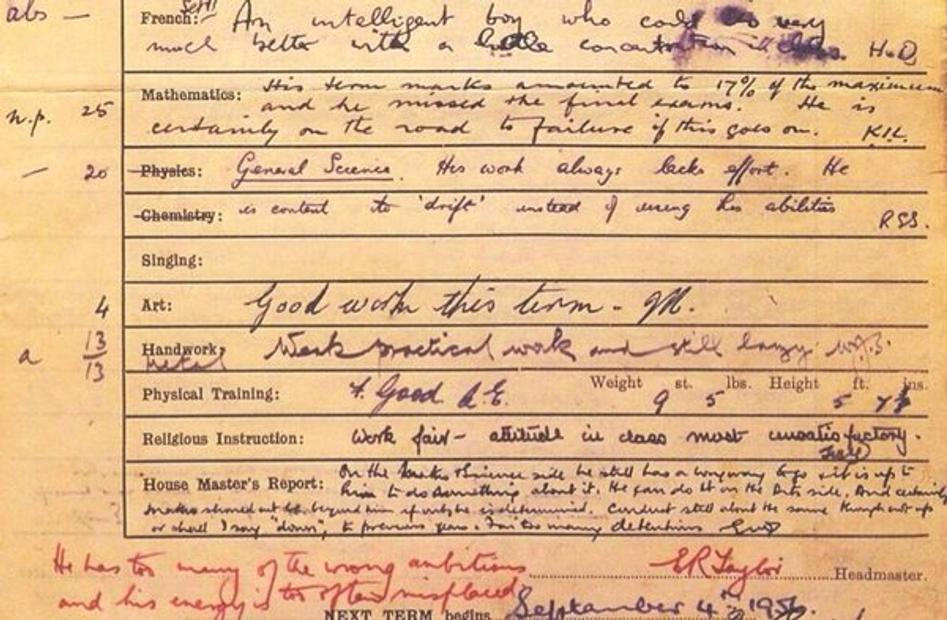 abs —
French: An intelligent boy who could do very
much better with a little concentration in class. H.D.
Mathematics: His term marks amounted to 17% of the maximum
n.p. 25 and he missed the final exams. He is
certainly on the road to failure if this goes on.
— 20 Physics: General Science. His work always lacks effort. He
Chemistry: is content to 'drift' instead of using his abilities
RSS.
Singing:
4 Art: Good work this term -
a 13/13 Handwork: Weak practical work and still lazy
Metal
Weight st. lbs. Height ft. ins.
Physical Training: F. Good 9 5 5 7
Religious Instruction: Work fair - attitude in class most unsatisfactory.
On the Maths & Science side he still has a long way to go & it is up to
House Master's Report: him to do something about it. He can do it on the Arts side. And certainly
should not be beyond him if only he is determined. Conduct still about the same through out up
or shall I say "down", to previous years. Far too many detentions
He has too many of the wrong ambitions ER Taylor Headmaster.
and his energy is too often misplaced
NEXT TERM begins September 4th 1956.